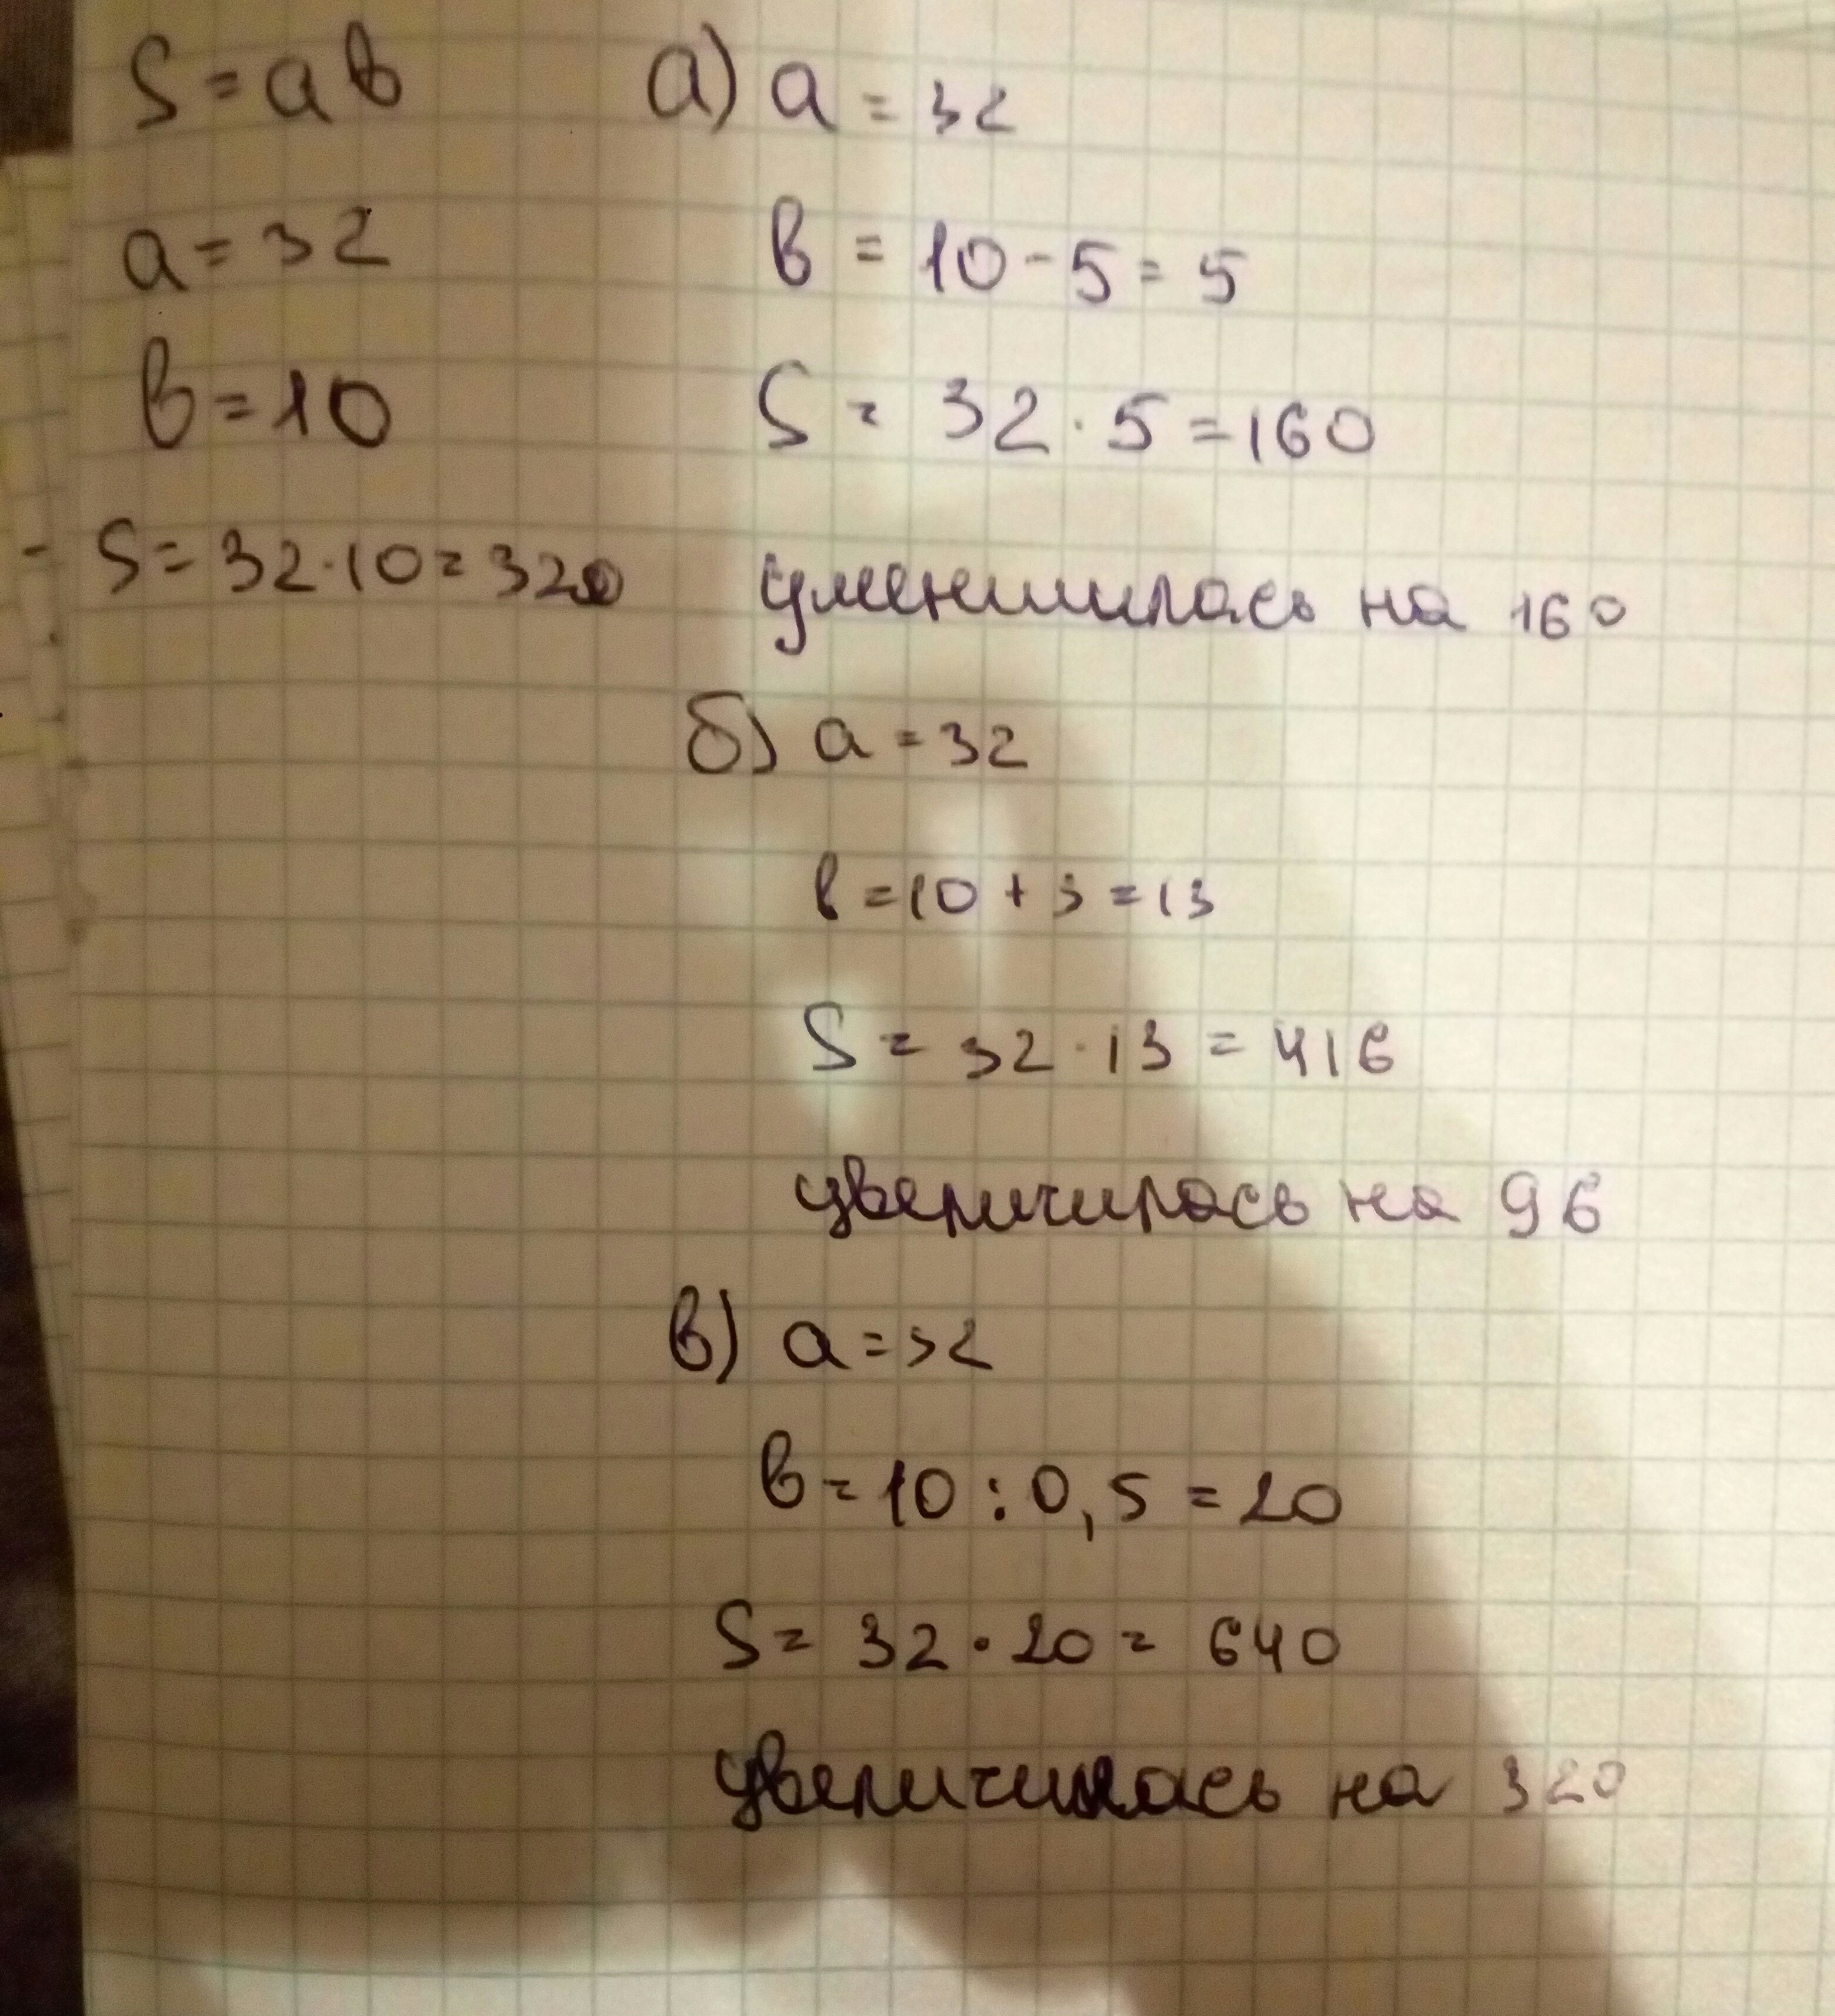 S = ab
a = 32
b = 10
- S = 32 · 10 = 320
а) a = 32
b = 10 - 5 = 5
S = 32 · 5 = 160
уменшилась на 160
б) a = 32
b = 10 + 3 = 13
S = 32 · 13 = 416
увеличилась на 96
в) a = 32
b = 10 : 0,5 = 20
S = 32 · 20 = 640
увеличилась на 320